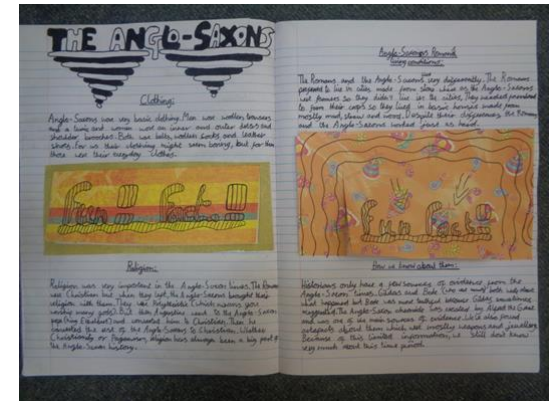 THE ANGLO-SAXONS
Clothing:
Anglo-Saxons wore very basic clothing. Men wore woollen trousers
and a tunic and women wore an inner and outer
shoulder brooches. Both wore belts, woollen socks and leather
shoes. For us their clothing might seem boring, but for them
these were their everyday clothes.
Fun Fact
Religion:
Religion was very important in the Anglo-Saxon times. The Romans
were Christian but when they left, the Anglo-Saxons brought their
religion with them. They were Polytheists (which means you
worship many gods). But then Augustine went to the Anglo-Saxon
and converted him to Christian. Then he
converted the rest of the Anglo-Saxons to Christianity. Whether
Christianity or Paganism, religion has always been a big part of
the Anglo-Saxon history.
Living conditions:
The Romans and the Anglo-Saxons very differently. The Romans
to live in cities made from stone where as the Anglo-Saxons
were farmers so they didn't live in the cities. They
to farm their crops so they lived in houses made from
mostly mud, straw and wood. Despite their differences the Romans
and the Anglo-Saxons worked just as hard.
Fun Fact
How we know about them:
Historians only have a few sources of evidence from the
Anglo-Saxon times. Gildas and Bede (who were monks) both
what happened but Bede was more because Gildas sometimes
exaggerated. The Anglo-Saxon chronicle was created by Alfred the Great
and was one of the main sources of evidence. We've also found
artefacts about them which are mostly weapons and jewellery.
Because of this limited information, we still don't know
very much about this time period.